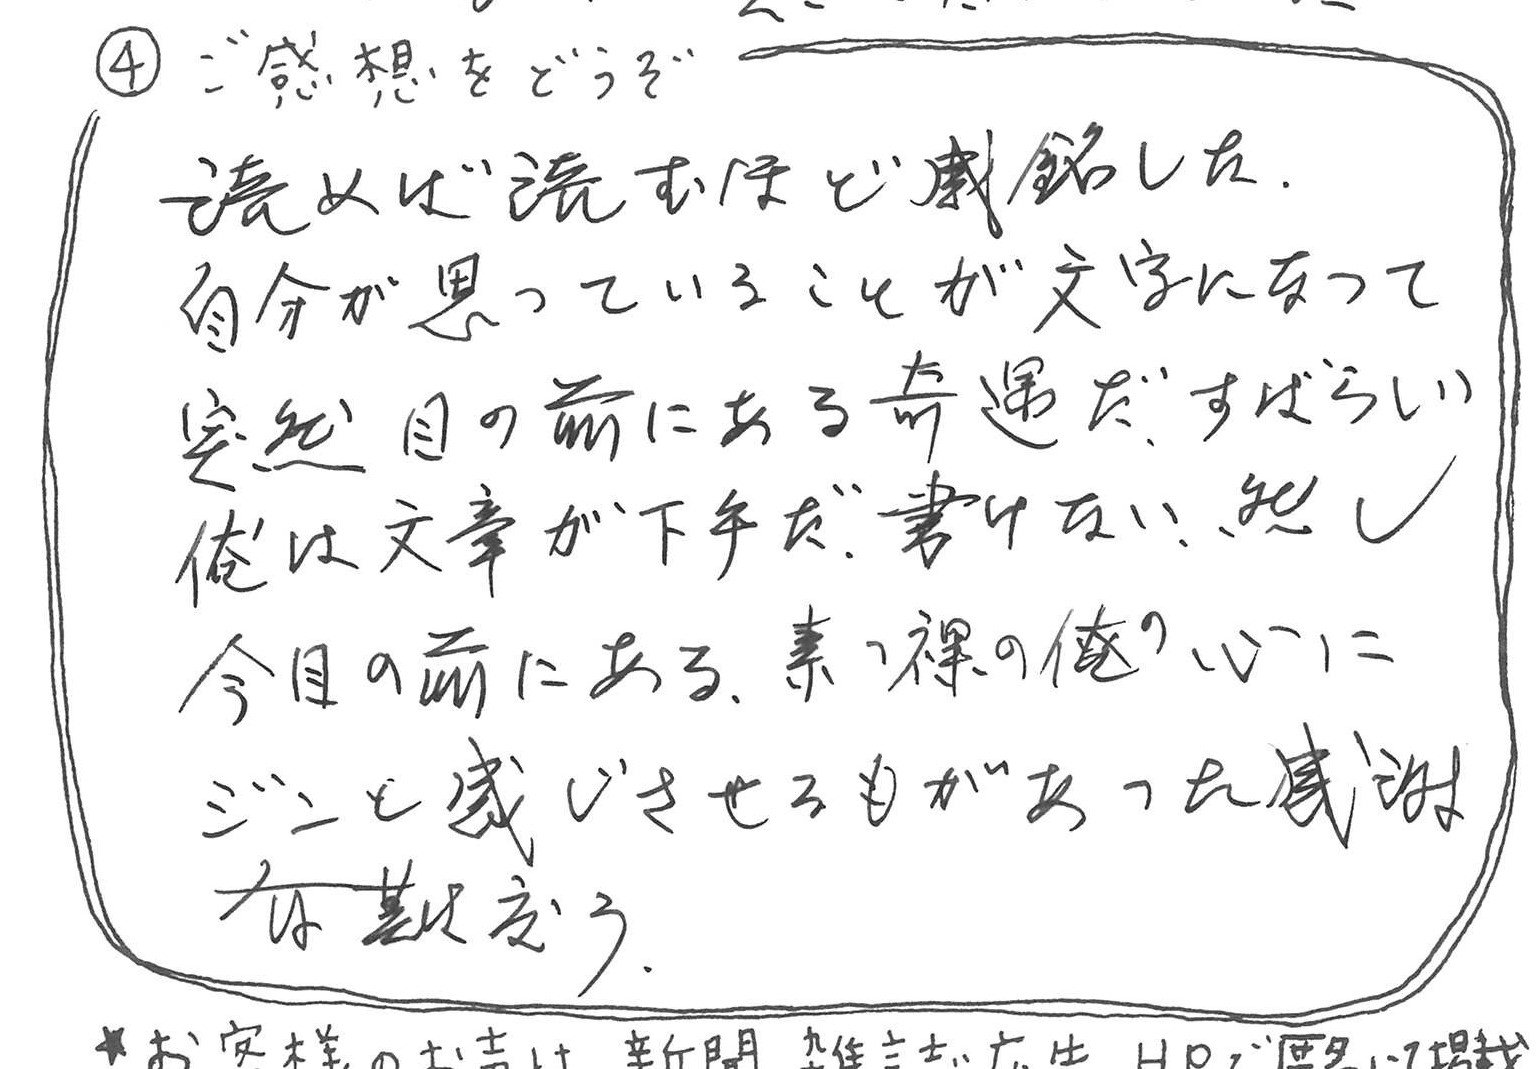 ④ ご感想をどうぞ
読めば読むほど感銘した.
自分が思っていることが文字になって
突然目の前にある奇遇だ、すばらしい
俺は文章が下手だ、書けない、然し
今目の前にある、素っ裸の俺の心に
ジンと感じさせるもがあった感謝
有難度う.
★お客様のお声は、新聞、雑誌、広告、HPで匿名にて掲載